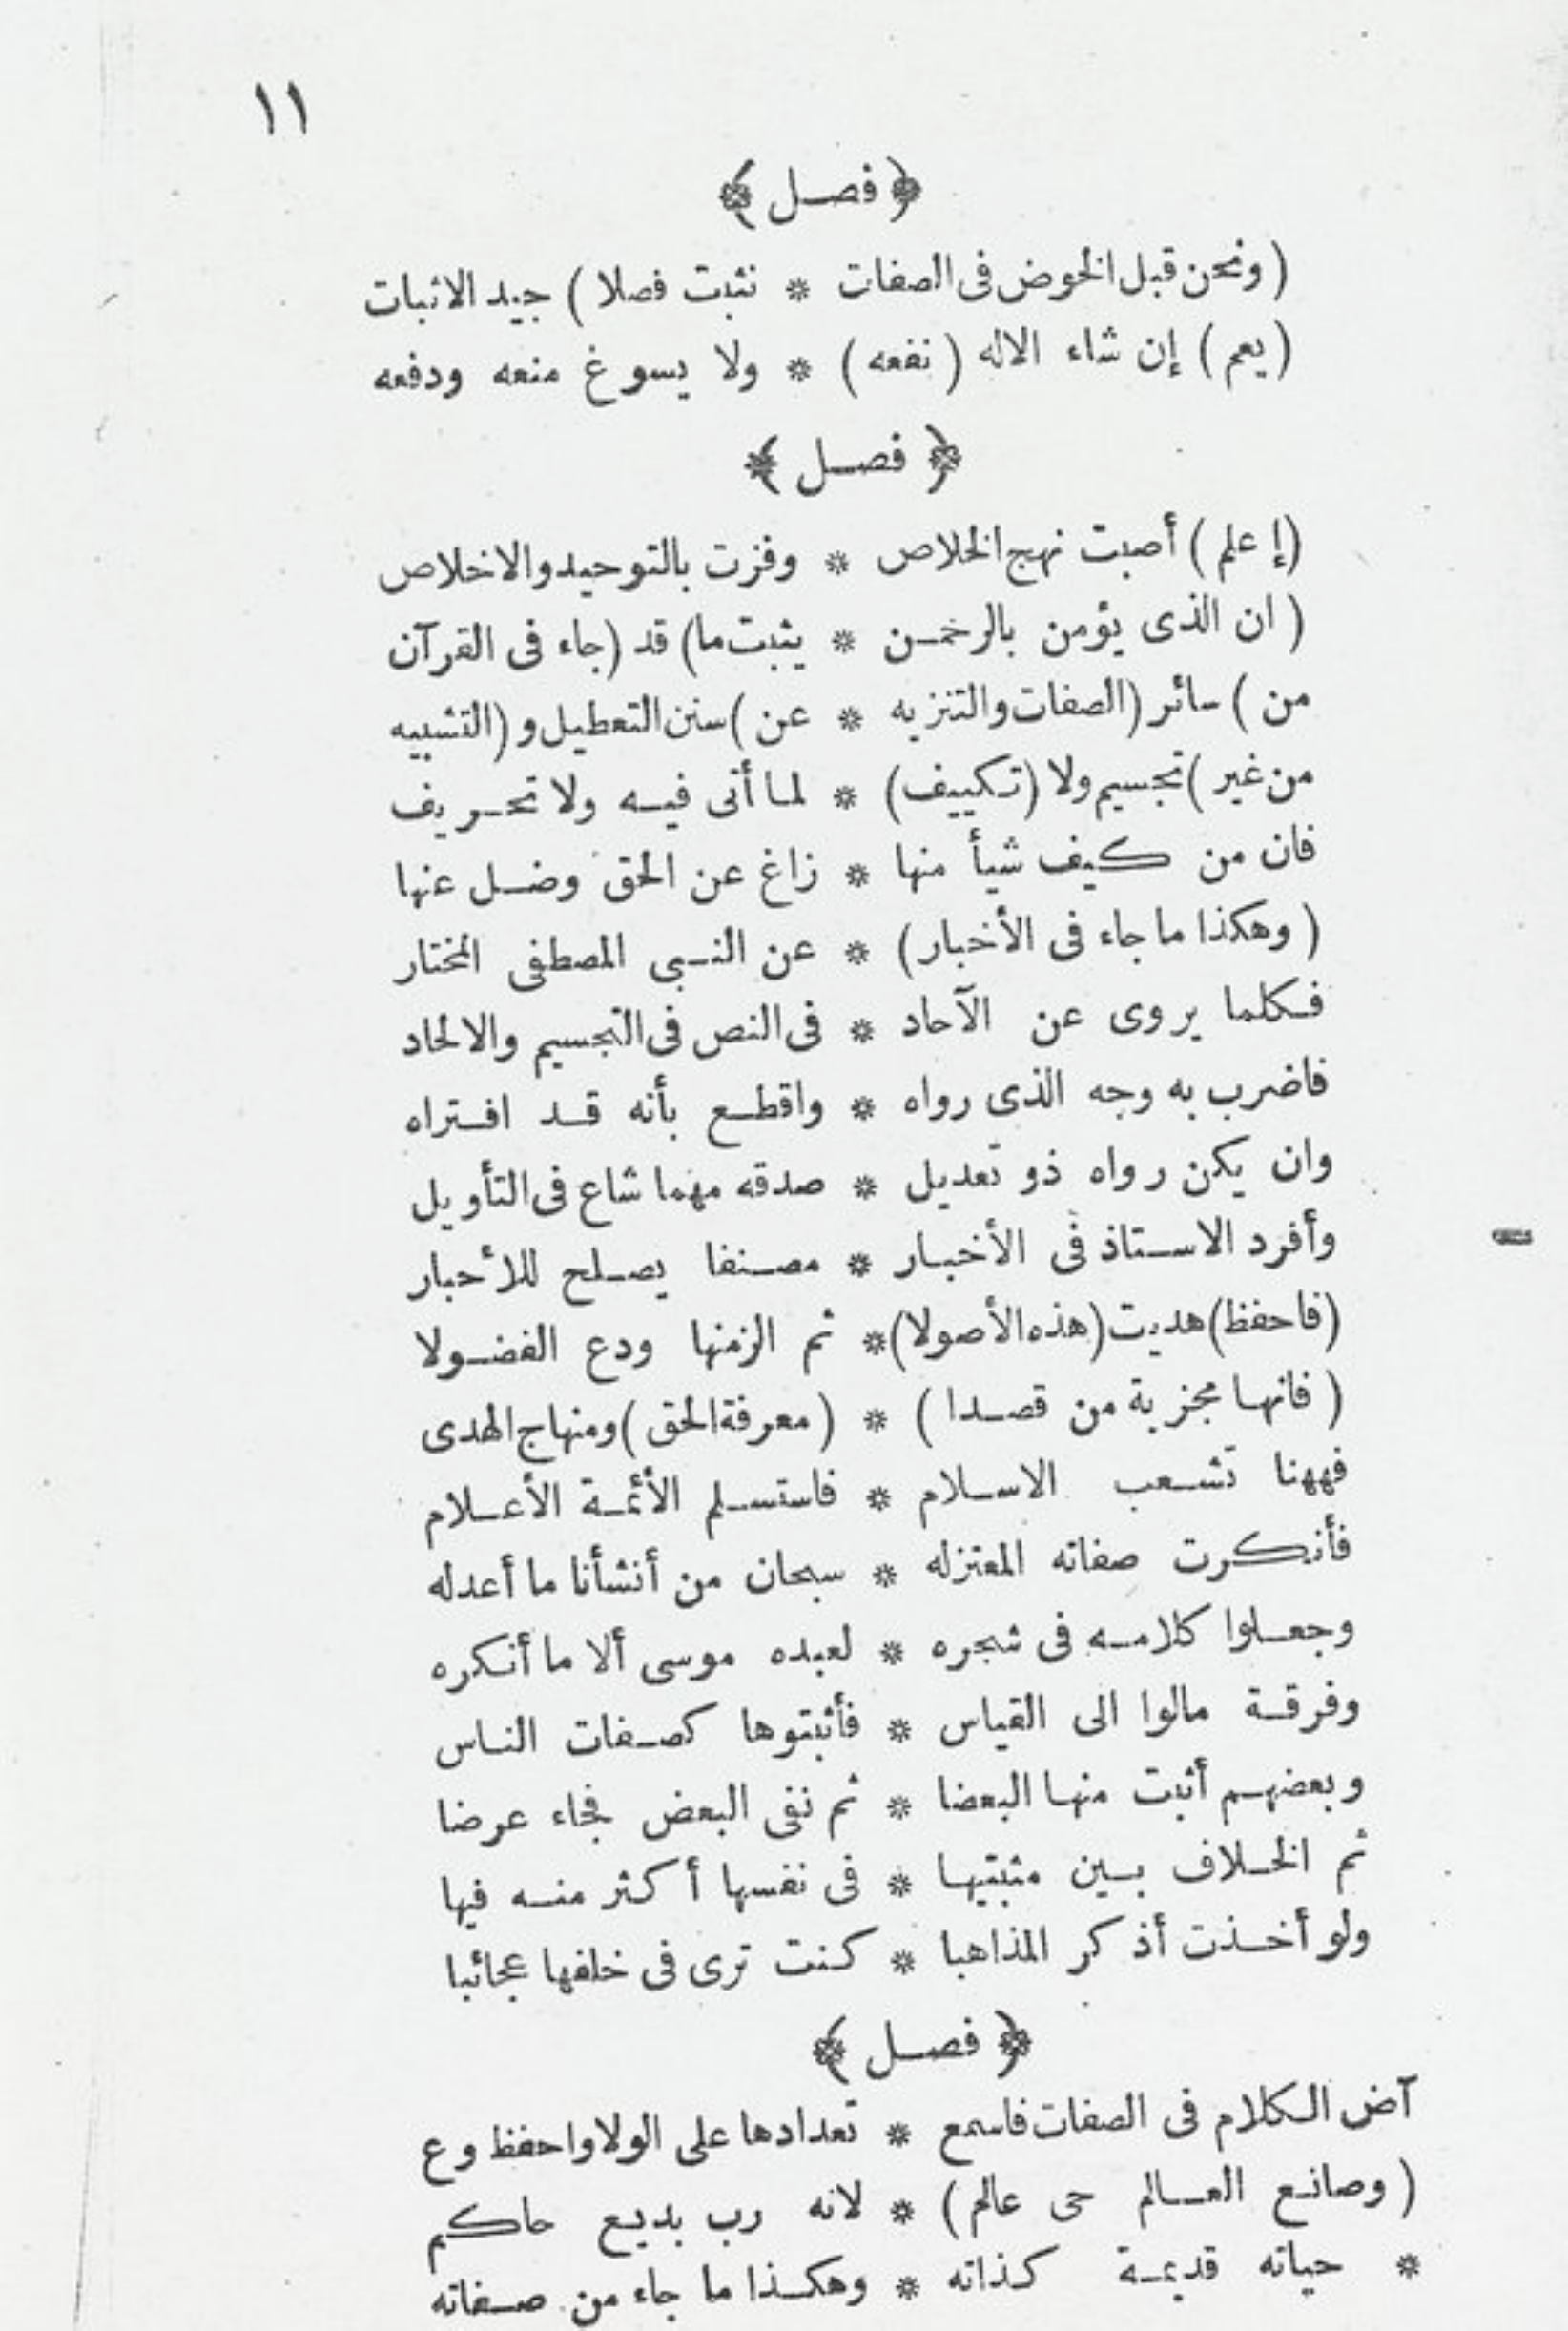 ١١
﴿ فصل ﴾
( ونحن قبل الخوض فى الصفات * نثبت فصلا ) جيد الاثبات
( يعم ) إن شاء الاله ( نفعه ) * ولا يسوغ منعه ودفعه
﴿ فصل ﴾
(إعلم ) أصبت نهج الخلاص * وفزت بالتوحيد والاخلاص
( ان الذى يؤمن بالرحمن * يثبت ما) قد (جاء فى القرآن
من ) سائر (الصفات والتنزيه * عن ) سنن التعطيل و (التشبيه
من غير ) تجسيم ولا (تكييف) * لما أتى فيه ولا تحريف
فان من كيف شيأ منها * زاغ عن الحق وضل عنها
( وهكذا ما جاء فى الأخبار) * عن النبى المصطفى المختار
فكلما يروى عن الآحاد * فى النص فى التجسيم والالحاد
فاضرب به وجه الذى رواه * واقطع بأنه قد افتراه
وان يكن رواه ذو تعديل * صدقه مهما شاع فى التأويل
وأفرد الاستاذ فى الأخبار * مصنفا يصلح للأحبار
(فاحفظ) هديت (هذه الأصولا) * ثم الزمنها ودع الفضولا
( فانها مجزية من قصدا ) * ( معرفة الحق ) ومنهاج الهدى
فههنا تشعب الاسلام * فاستسلم الأئمة الأعلام
فأنكرت صفاته المعتزله * سبحان من أنشأنا ما أعدله
وجعلوا كلامه فى شجره * لعبده موسى ألا ما أنكره
وفرقة مالوا الى القياس * فأثبتوها كصفات الناس
وبعضهم أثبت منها البعضا * ثم نفى البعض فجاء عرضا
ثم الخلاف بين مثبتيها * فى نفسها أكثر منه فيها
ولو أخذت أذكر المذاهبا * كنت ترى فى خلفها عجائبا
﴿ فصل ﴾
آض الكلام فى الصفات فاسمع * تعدادها على الولا واحفظ وع
( وصانع العالم حى عالم ) * لانه رب بديع حاكم
* حياته قديمة كذاته * وهكذا ما جاء من صفاته